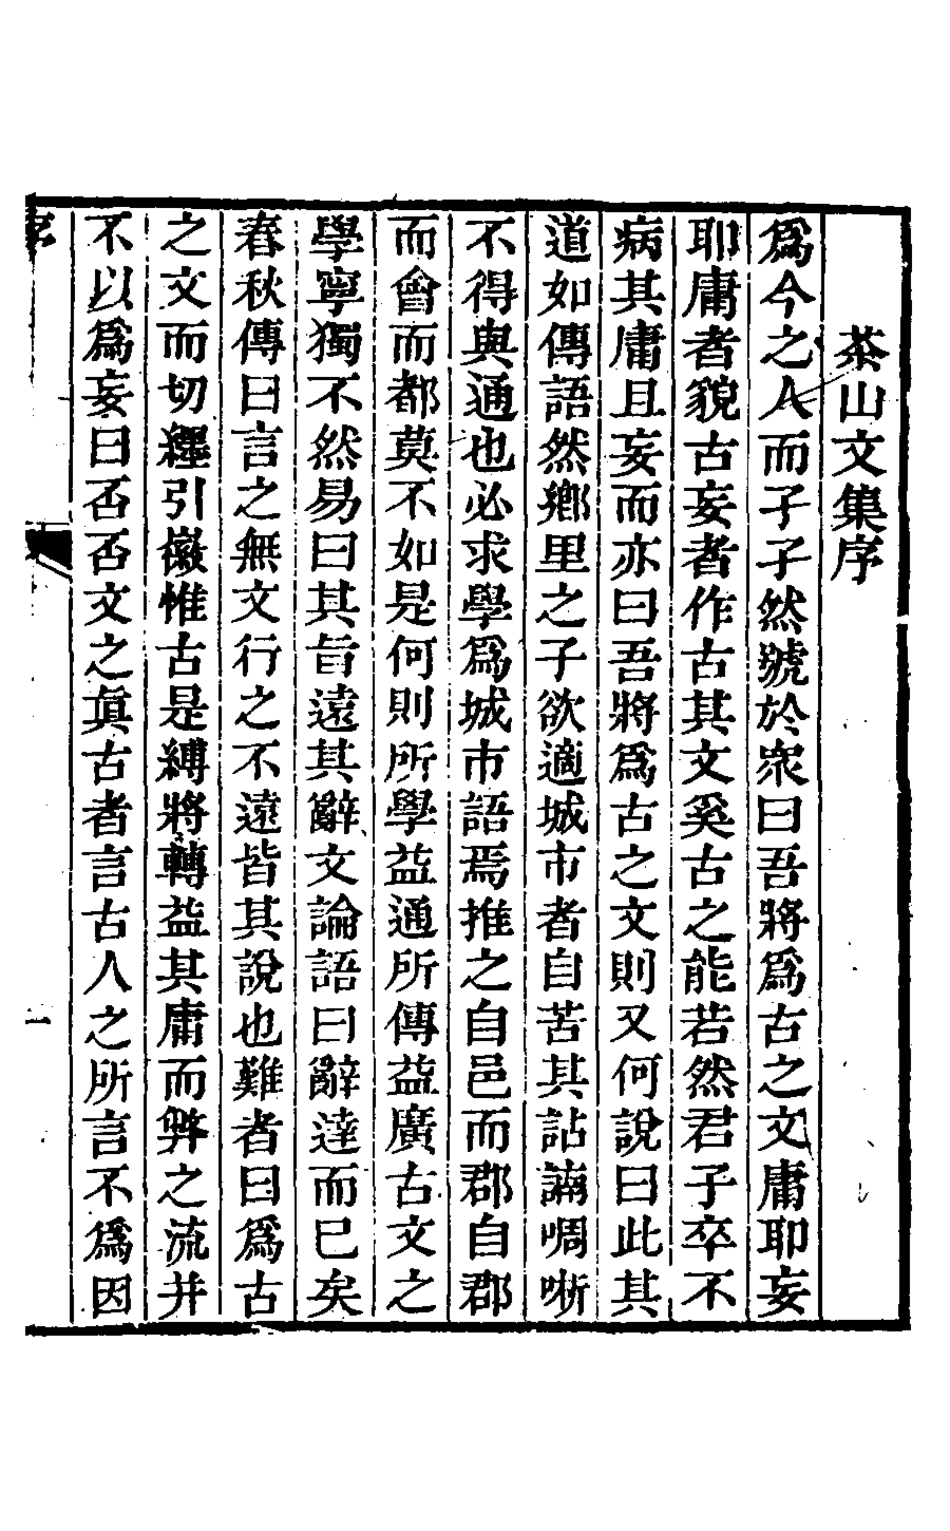 茶山文集序
爲今之人而孑孑然號於衆曰吾將爲古之文庸耶妄
耶庸者貌古妄者作古其文奚古之能若然君子卒不
病其庸且妄而亦曰吾將爲古之文則又何說曰此其
道如傳語然鄉里之子欲適城市者自苦其詀諵啁哳
不得與通也必求學爲城市語焉推之自邑而郡自郡
而會而都莫不如是何則所學益通所傳益廣古文之
學寧獨不然易曰其旨遠其辭文論語曰辭達而已矣
春秋傳曰言之無文行之不遠皆其說也難者曰爲古
之文而切繩引徽惟古是縛將轉益其庸而弊之流并
不以爲妄曰否否文之眞古者言古人之所言不爲因
序
一